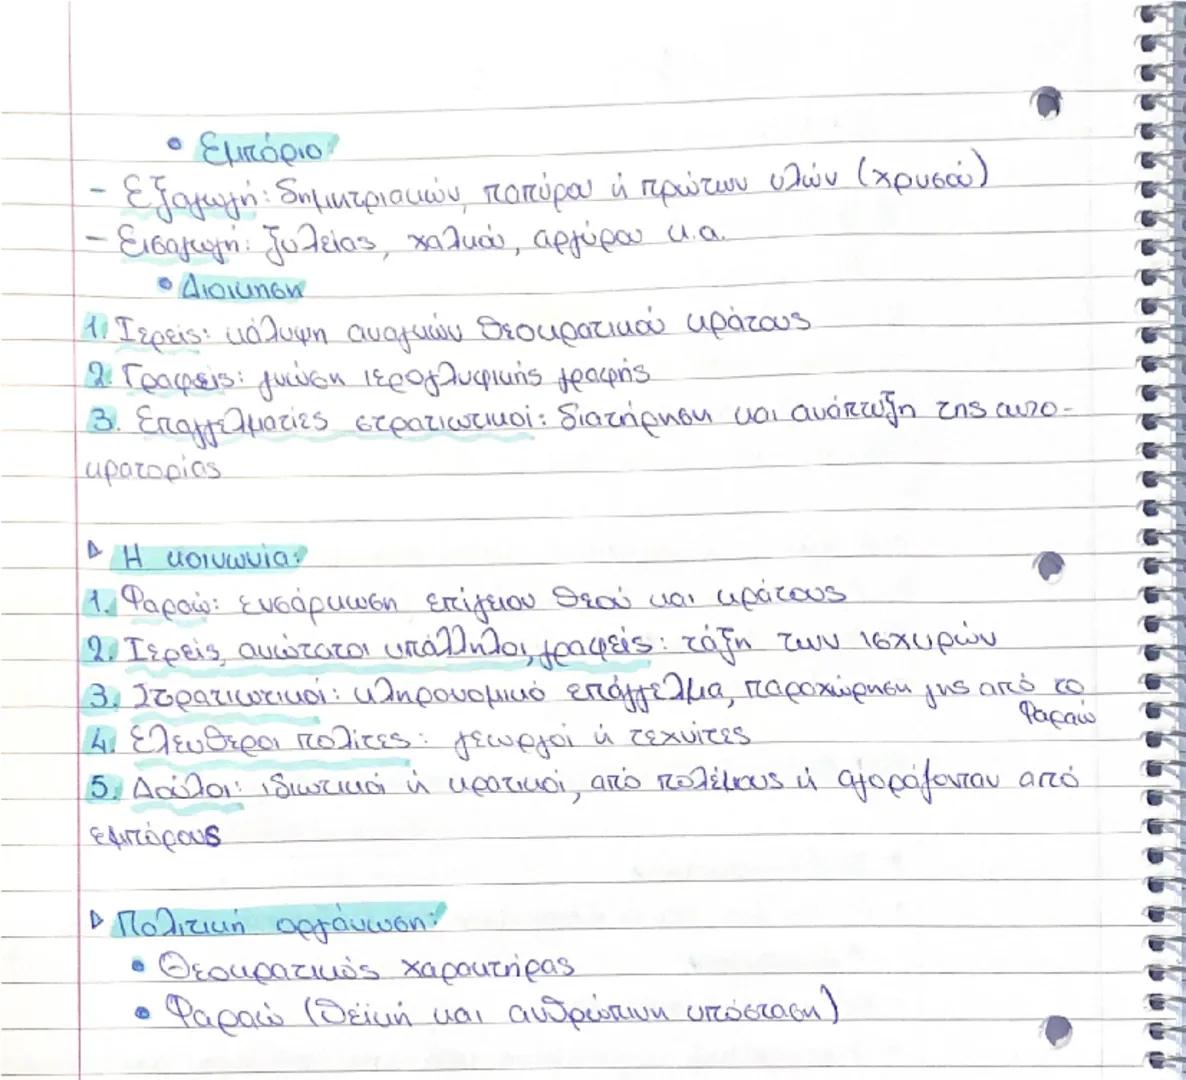 • Εμπόριο
- Εξαγωγή: δημητριακών, παπύρου ή πρώτων υλών (χρυσού)
- Εισαγωγή: ξυλείας, χαλκού, αργύρου κ.α.
• Διοίκηση
1. Ιερείς: κάλυψη αναγκών θεοκρατικού κράτους
2. Γραφείς: γνώση ιερογλυφικής γραφής
3. Επαγγελματίες στρατιωτικοί: διατήρηση και ανάπτυξη της αυτο-
κρατορίας
▷ Η κοινωνία:
1. Φαραώ: ενσάρκωση επίγειου θεού και κράτους
2. Ιερείς, ανώτατοι υπάλληλοι, γραφείς: τάξη των ισχυρών
3. Στρατιωτικοί: κληρονομικό επάγγελμα, παραχώρηση γης από το
Φαραώ
4. Ελεύθεροι πολίτες: γεωργοί ή τεχνίτες
5. Δούλοι: ιδιωτικοί ή κρατικοί, από πολέμους ή αγοράζονταν από
εμπόρους
▷ Πολιτική οργάνωση:
• Θεοκρατικός χαρακτήρας
• Φαραώ (θεϊκή και ανθρώπινη υπόσταση)